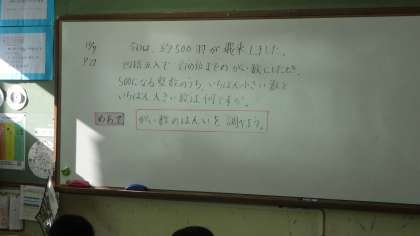 約500羽が飛来しました。
四捨五入で 百の位までの がい数にしたとき、
500になる整数のうち、いちばん小さい数と
いちばん大きい数は何ですか。
めあて がい数のはんいを 調べよう。